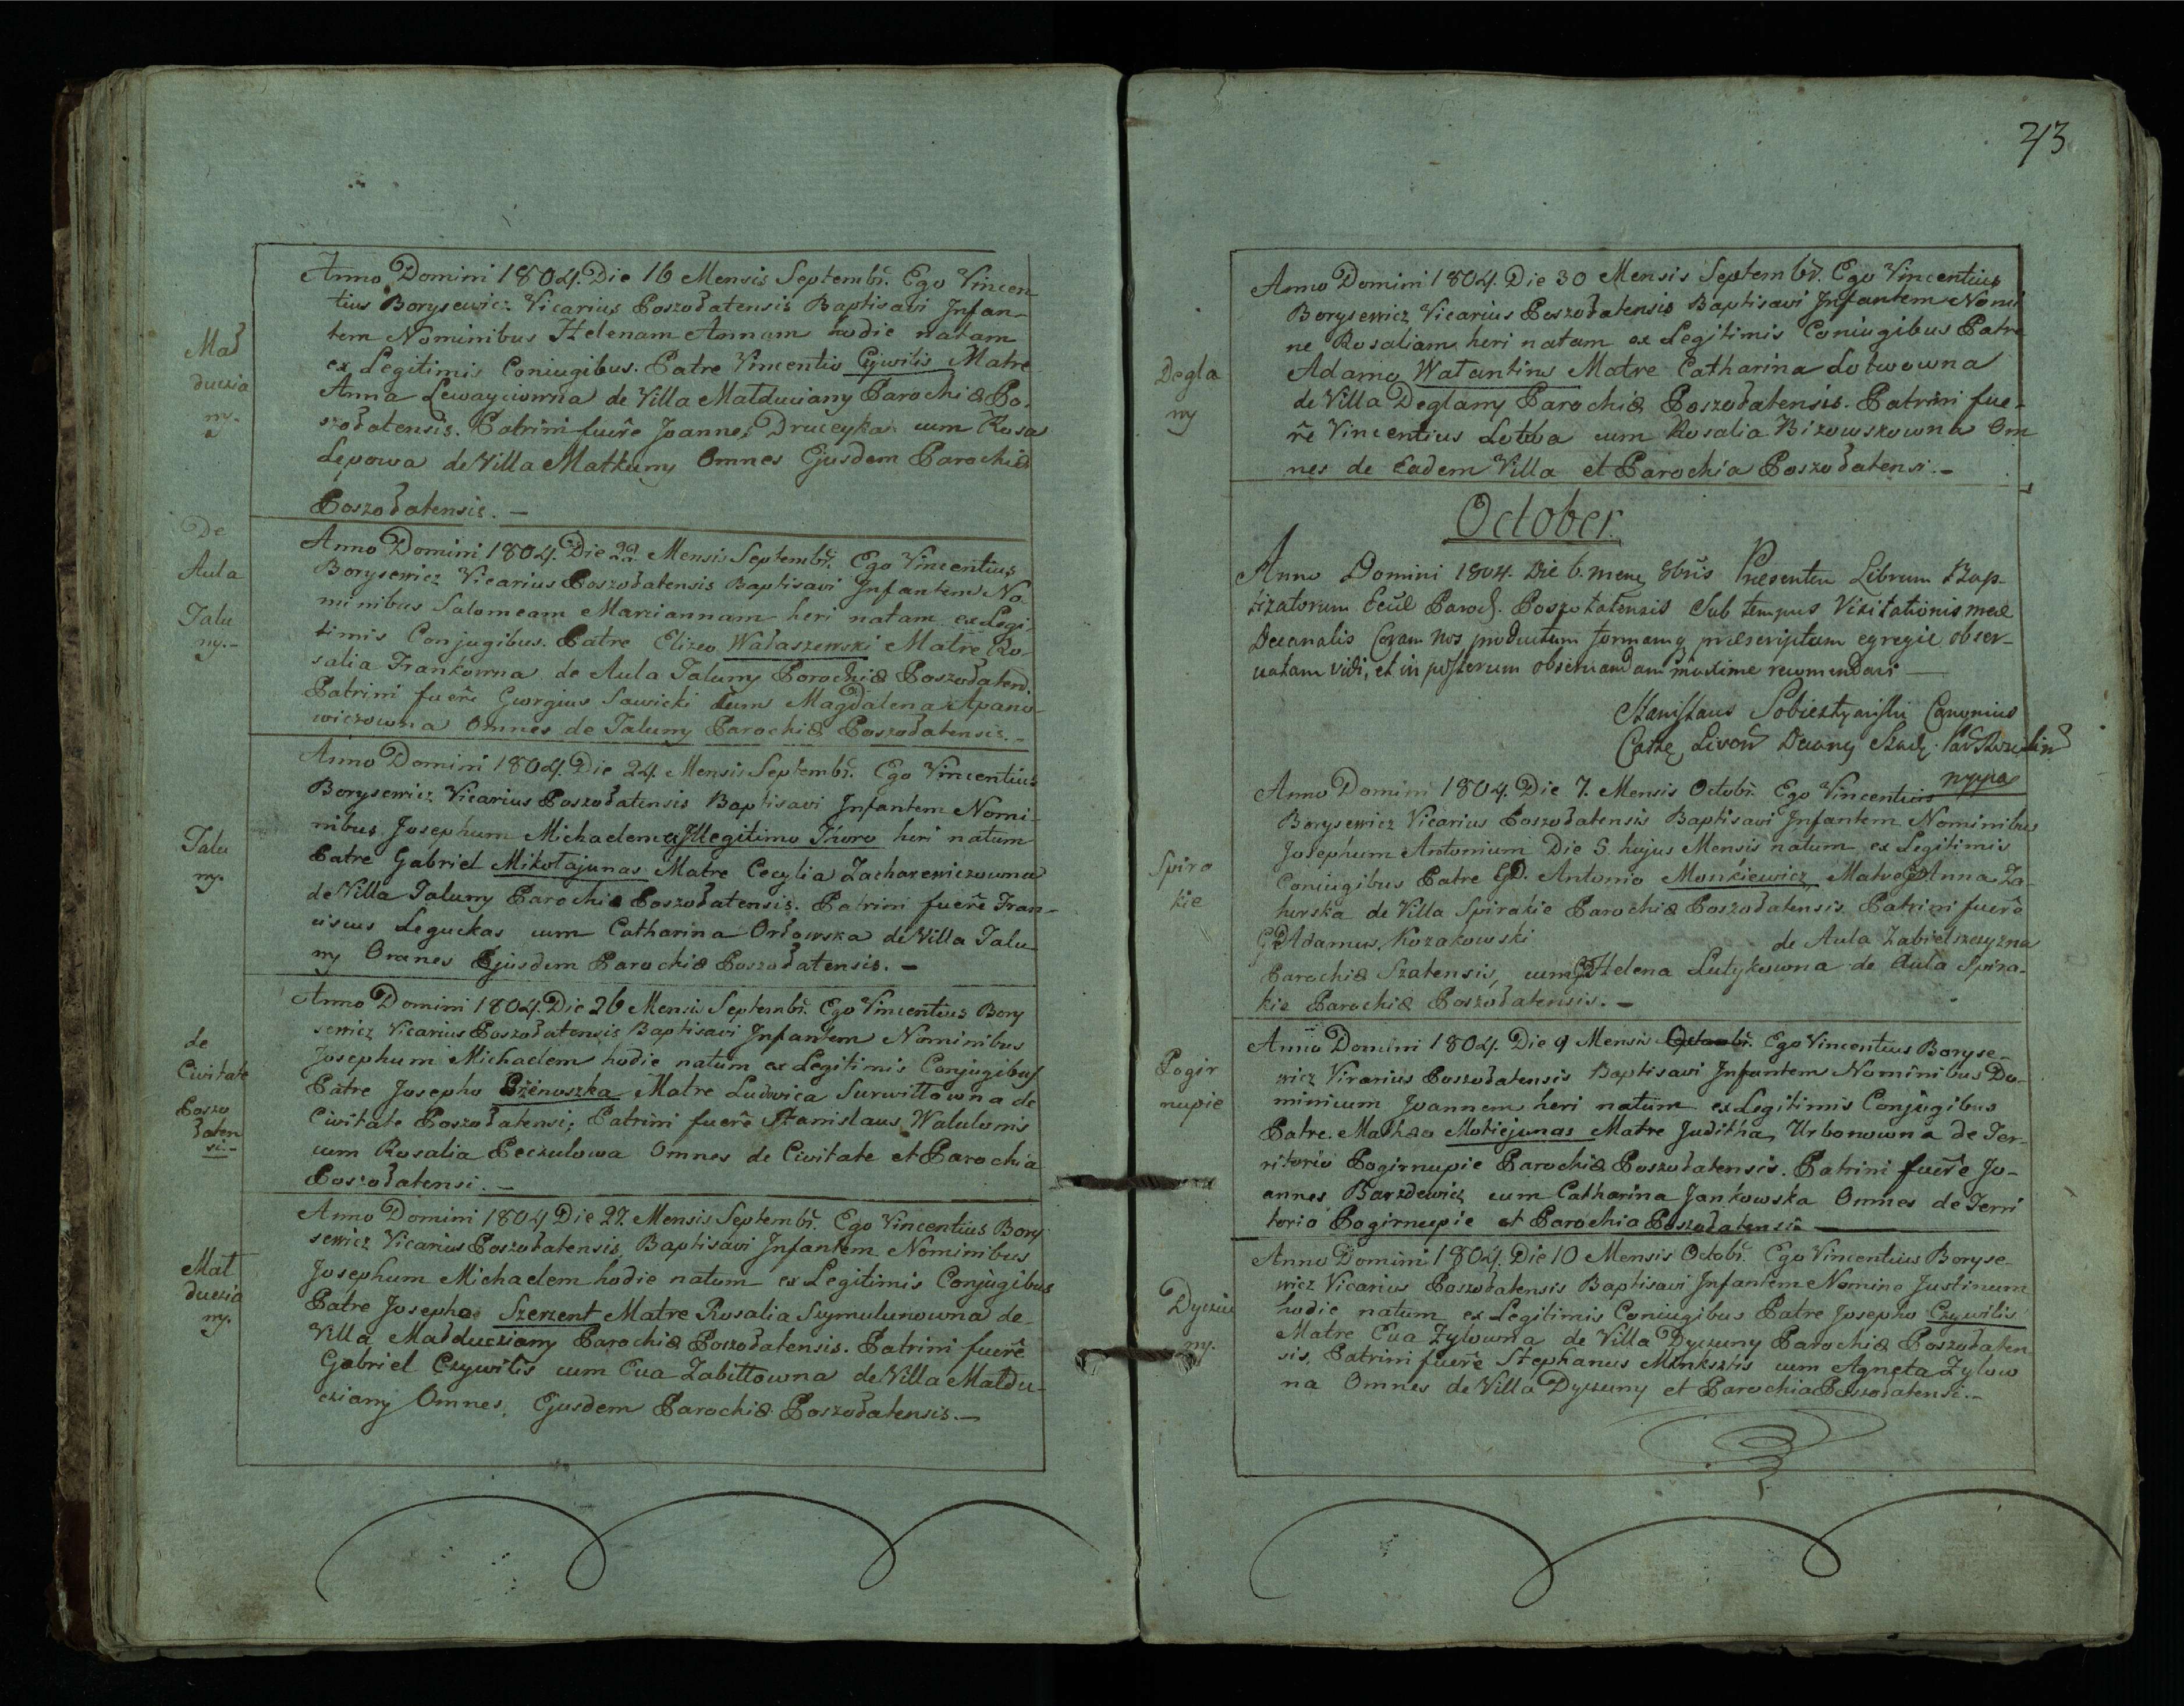 Mał
duczia
ny.
Anno Domini 1804. Die 16 Mensis Septembr̃. Ego Vincen-
tius Borysewicz Vicarius Poszołatensis Baptisavi Infan-
tem Nominibus Helenam Annam hodie natam
ex Legitimis Coniugibus. Patre Vincentio Czywilis Matre
Anna Lewayciowna de Villa Małduciany Parochiæ Po-
szołatensis. Patrini fuer̃e Joannes Druceyka cum Rosa
Lepowa de Villa Matkuny Omnes Ejusdem Parochiæ
Poszołatensis. —
De
Aula
Talu
ny.-
Anno Domini 1804. Die 22 Mensis Septembr̃. Ego Vincentius
Borysewicz Vicarius Poszołatensis Baptisavi Infantem No-
minibus Salomeam Mariannam heri natam ex Legi-
timis Conjugibus. Patre Elizeo Wałaszewski Matre Ro-
salia Frankowna de Aula Taluny Parochiæ Poszołaten.
Patrini fuer̃e Georgius Sawicki cum Magdalena Apano-
wiczowna Omnes de Taluny Parochiæ Poszołatensis.-
Talu
ny.
Anno Domini 1804. Die 24. Mensis Septembr̃. Ego Vincentius
Borysewicz Vicarius Poszołatensis Baptisavi Infantem Nomi-
nibus Josephum Michaelem ex Illegitimo Thoro heri natum
Patre Gabriel Mikołajunas Matre Cecylia Zacharewiczowna
de Villa Taluny Parochiæ Poszołatensis. Patrini fuer̃e Fran-
ciscus Leguckas cum Catharina Orłowska de Villa Talu-
ny Omnes Ejusdem Parochiæ Poszołatensis. —
de
Civitate
Poszo
łaten
si.-
Anno Domini 1804. Die 26 Mensis Septembr̃. Ego Vincentius Bory
sewicz Vicarius Poszołatensis Baptisavi Infantem Nominibus
Josephum Michaelem hodie natum ex Legitimis Conjugibus
Patre Josepho Bżenuszka Matre Ludovica Surwiłłowna de
Civitate Poszołatensi; Patrini fuer̃e Stanislaus Walulonis
cum Rosalia Peczulowa Omnes de Civitate et Parochia
Poszołatensi. —
Mał
duczia
ny.
Anno Domini 1804 Die 27. Mensis Septembr̃. Ego Vincentius Bory
sewicz Vicarius Poszołatensis Baptisavi Infantem Nominibus
Josephum Michaelem hodie natum ex Legitimis Conjugibus
Patre Josepho Szerzent Matre Rosalia Szymulunowna de
Villa Małducziany Parochiæ Poszołatensis. Patrini fuer̃e
Gabriel Czywilis cum Eva Zabiłłowna de Villa Małdu-
cziany Omnes Ejusdem Parochiæ Poszołatensis.—
43
Degla
ny
Anno Domini 1804. Die 30 Mensis Septembr̃. Ego Vincentius
Borysewicz Vicarius Poszołatensis Baptisavi Infantem Nomi
ne Rosaliam heri natam ex Legitimis Coniugibus Patre
Adamo Watantins Matre Catharina Lotwowna
de Villa Deglany Parochiæ Poszołatensis. Patrini fue-
r̃e Vincentius Lotwa cum Rosalia Bizowskowna Om
nes de Eadem Villa et Parochia Poszołatensi.-
October.
Anno Domini 1804. Die 6. mens 8bris Præsentem Librum Bap-
tizatorum Eccl Paroch. Poszołatensis Sub tempus Visitationis meæ
Decanalis Coram nos productum formamq præscriptam egregie obser-
vatam vidi, et in posterum observandam maxime recomendavi —
Stanislaus Sobiestyański Canonicus
Cathe Livon Decanq
mppa
Spiro
kie
Anno Domini 1804. Die 7. Mensis Octobr̃. Ego Vincentius
Borysewicz Vicarius Poszołatensis Baptisavi Infantem Nominibus
Josephum Antonium Die 5 hujus Mensis natum ex Legitimis
Coniugibus Patre GD. Antonio Monkiewicz Matre GD Anna Za-
hurska de Villa Spirakie Parochiæ Poszołatensis Patrini fuer̃e
GD Adamus Kozakowski de Aula Zabielszczyzna
Parochiæ Szatensis, cum GD Helena Lutykowna de Aula Spira-
kie Parochiæ Poszołatensis. —
Pogir
nupie
Anno Domini 1804. Die 9 Mensis Octombr̃. Ego Vincentius Boryse-
wicz Vicarius Poszołatensis Baptisavi Infantem Nominibus Do-
minicum Joannem heri natum ex Legitimis Conjugibus
Patre. Mathæo Motiejunas Matre Juditha Urbonowna de Ter-
ritorio Pogirnupie Parochiæ Poszołatensis. Patrini fuer̃e Jo-
annes Barzdewicz cum Catharina Jankowska Omnes de Terri
torio Pogirnupie et Parochia Poszołatensi —
Dyczu
ny.
Anno Domini 1804. Die 10 Mensis Octobr̃. Ego Vincentius Boryse-
wicz Vicarius Poszołatensis Baptisavi Infantem Nomine Justinum
hodie natum ex Legitimis Coniugibus Patre Josepho Czywilis
Matre Eva Zylowna de Villa Dyczuny Parochiæ Poszołaten
sis, Patrini fuer̃e Stephanus Minksztis cum Agneta Zylow
na Omnes de Villa Dyczuny et Parochia Poszołatensi.-